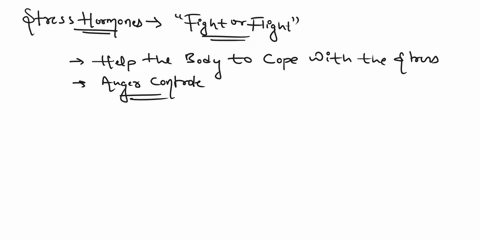 Stress Hormones → "Fight or Flight"
→ Help the Body to Cope with the stress
→ Anger Controle